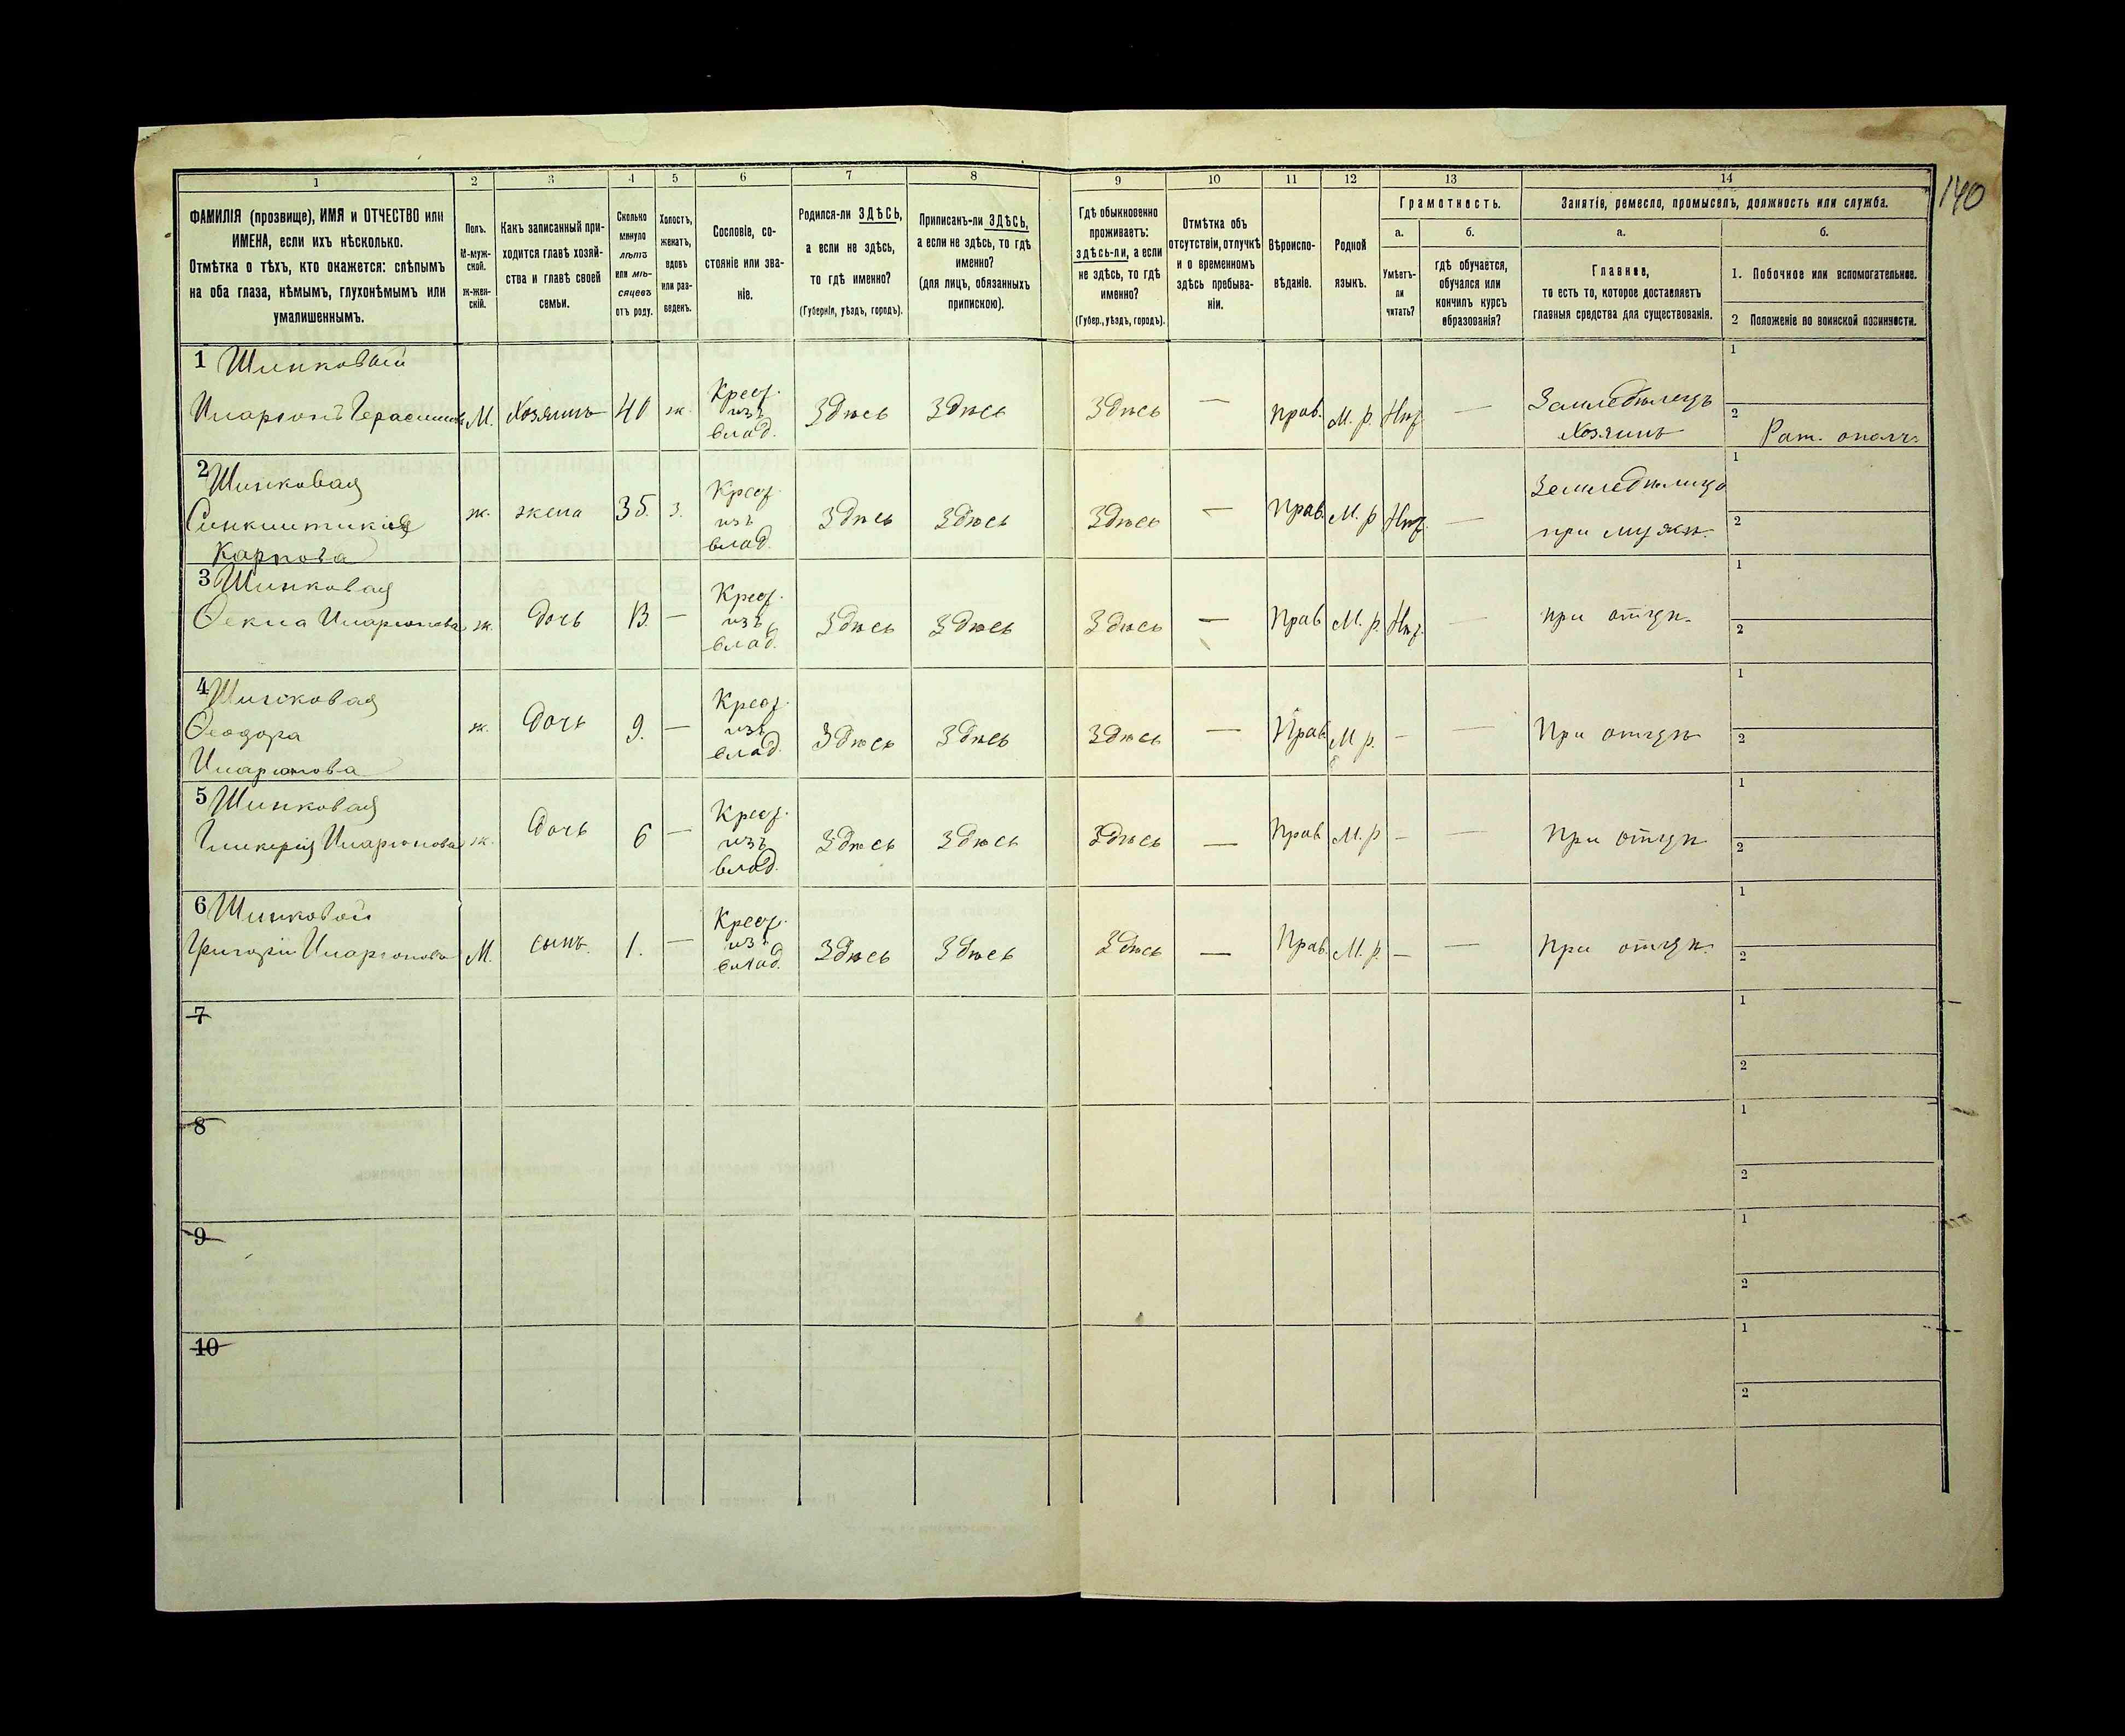 140
1 2 3 4 5 6 7 8 9 10 11 12 13 14
ФАМИЛІЯ (прозвище), ИМЯ и ОТЧЕСТВО или
ИМЕНА, если ихъ нѣсколько.
Отмѣтка о тѣхъ, кто окажется: слѣпымъ
на оба глаза, нѣмымъ, глухонѣмымъ или
умалишеннымъ.
Полъ.
М-муж-
ской.
ж-жен-
скій.
Какъ записанный при-
ходится главѣ хозяй-
ства и главѣ своей
семьи.
Сколько
минуло
лѣтъ
или мѣ-
сяцевъ
отъ роду.
Холостъ,
женатъ,
вдовъ
или раз-
веденъ.
Сословіе, со-
стояніе или зва-
ніе.
Родился-ли ЗДѢСЬ,
а если не здѣсь,
то гдѣ именно?
(Губернія, уѣздъ, городъ).
Приписанъ-ли ЗДѢСЬ,
а если не здѣсь, то гдѣ
именно?
(для лицъ, обязанныхъ
припискою).
Гдѣ обыкновенно
проживаетъ:
здѣсь-ли, а если
не здѣсь, то гдѣ
именно?
(Губер., уѣздъ, городъ).
Отмѣтка объ
отсутствіи, отлучкѣ
и о временномъ
здѣсь пребыва-
ніи.
Вѣроиспо-
вѣданіе.
Родной
языкъ.
Грамотность.
а.
Умѣетъ-
ли
читать?
б.
гдѣ обучается,
обучался или
кончилъ курсъ
образованія?
Занятіе, ремесло, промыселъ, должность или служба.
а.
Главное,
то есть то, которое доставляетъ
главныя средства для существованія.
б.
1. Побочное или вспомогательное.
2 Положеніе по воинской повинности.
1 Шинковый
Иларіонъ Герасимовъ М. Хозяинъ 40 ж. Крест. изъ влад. Здѣсь Здѣсь Здѣсь — Прав. М. р. Нѣт — Земледѣлецъ
Хозяинъ
1
2 Рат. ополч.
2 Шинковая
Синклитикія
Карпова ж. жена 35. з. Крест. изъ влад. Здѣсь Здѣсь Здѣсь — Прав. М. р. Нѣт — Земледѣлица
при мужѣ.
1
2
3 Шинковая
Ѳекла Иларіонова ж. дочь 13. — Крест. изъ влад. Здѣсь Здѣсь Здѣсь — Прав М. р. Нѣт. — при отцѣ.
1
2
4 Шинковая
Ѳеодора
Иларіонова ж. дочь 9. — Крест. изъ влад. Здѣсь Здѣсь Здѣсь — Прав М. р. — — При отцѣ
1
2
5 Шинковая
Гликерія Иларіонова ж. дочь 6 — Крест. изъ влад. Здѣсь Здѣсь Здѣсь — Прав М. р — — При отцѣ
1
2
6 Шинковой
Григорій Иларіоновъ М. сынъ. 1. — Крест. изъ влад. Здѣсь Здѣсь Здѣсь — Прав. М. р. — — При отцѣ.
1
2
7
1
2
8
1
2
9
1
2
10
1
2